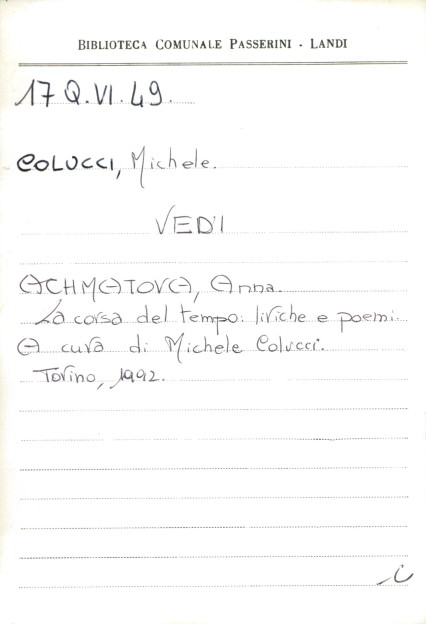 BIBLIOTECA COMUNALE PASSERINI - LANDI
17 Q.VI.49.
COLUCCI, Michele.
VEDI
ACHMATOVA, Anna.
La corsa del tempo: liriche e poemi.
A cura di Michele Colucci.
Torino, 1992.